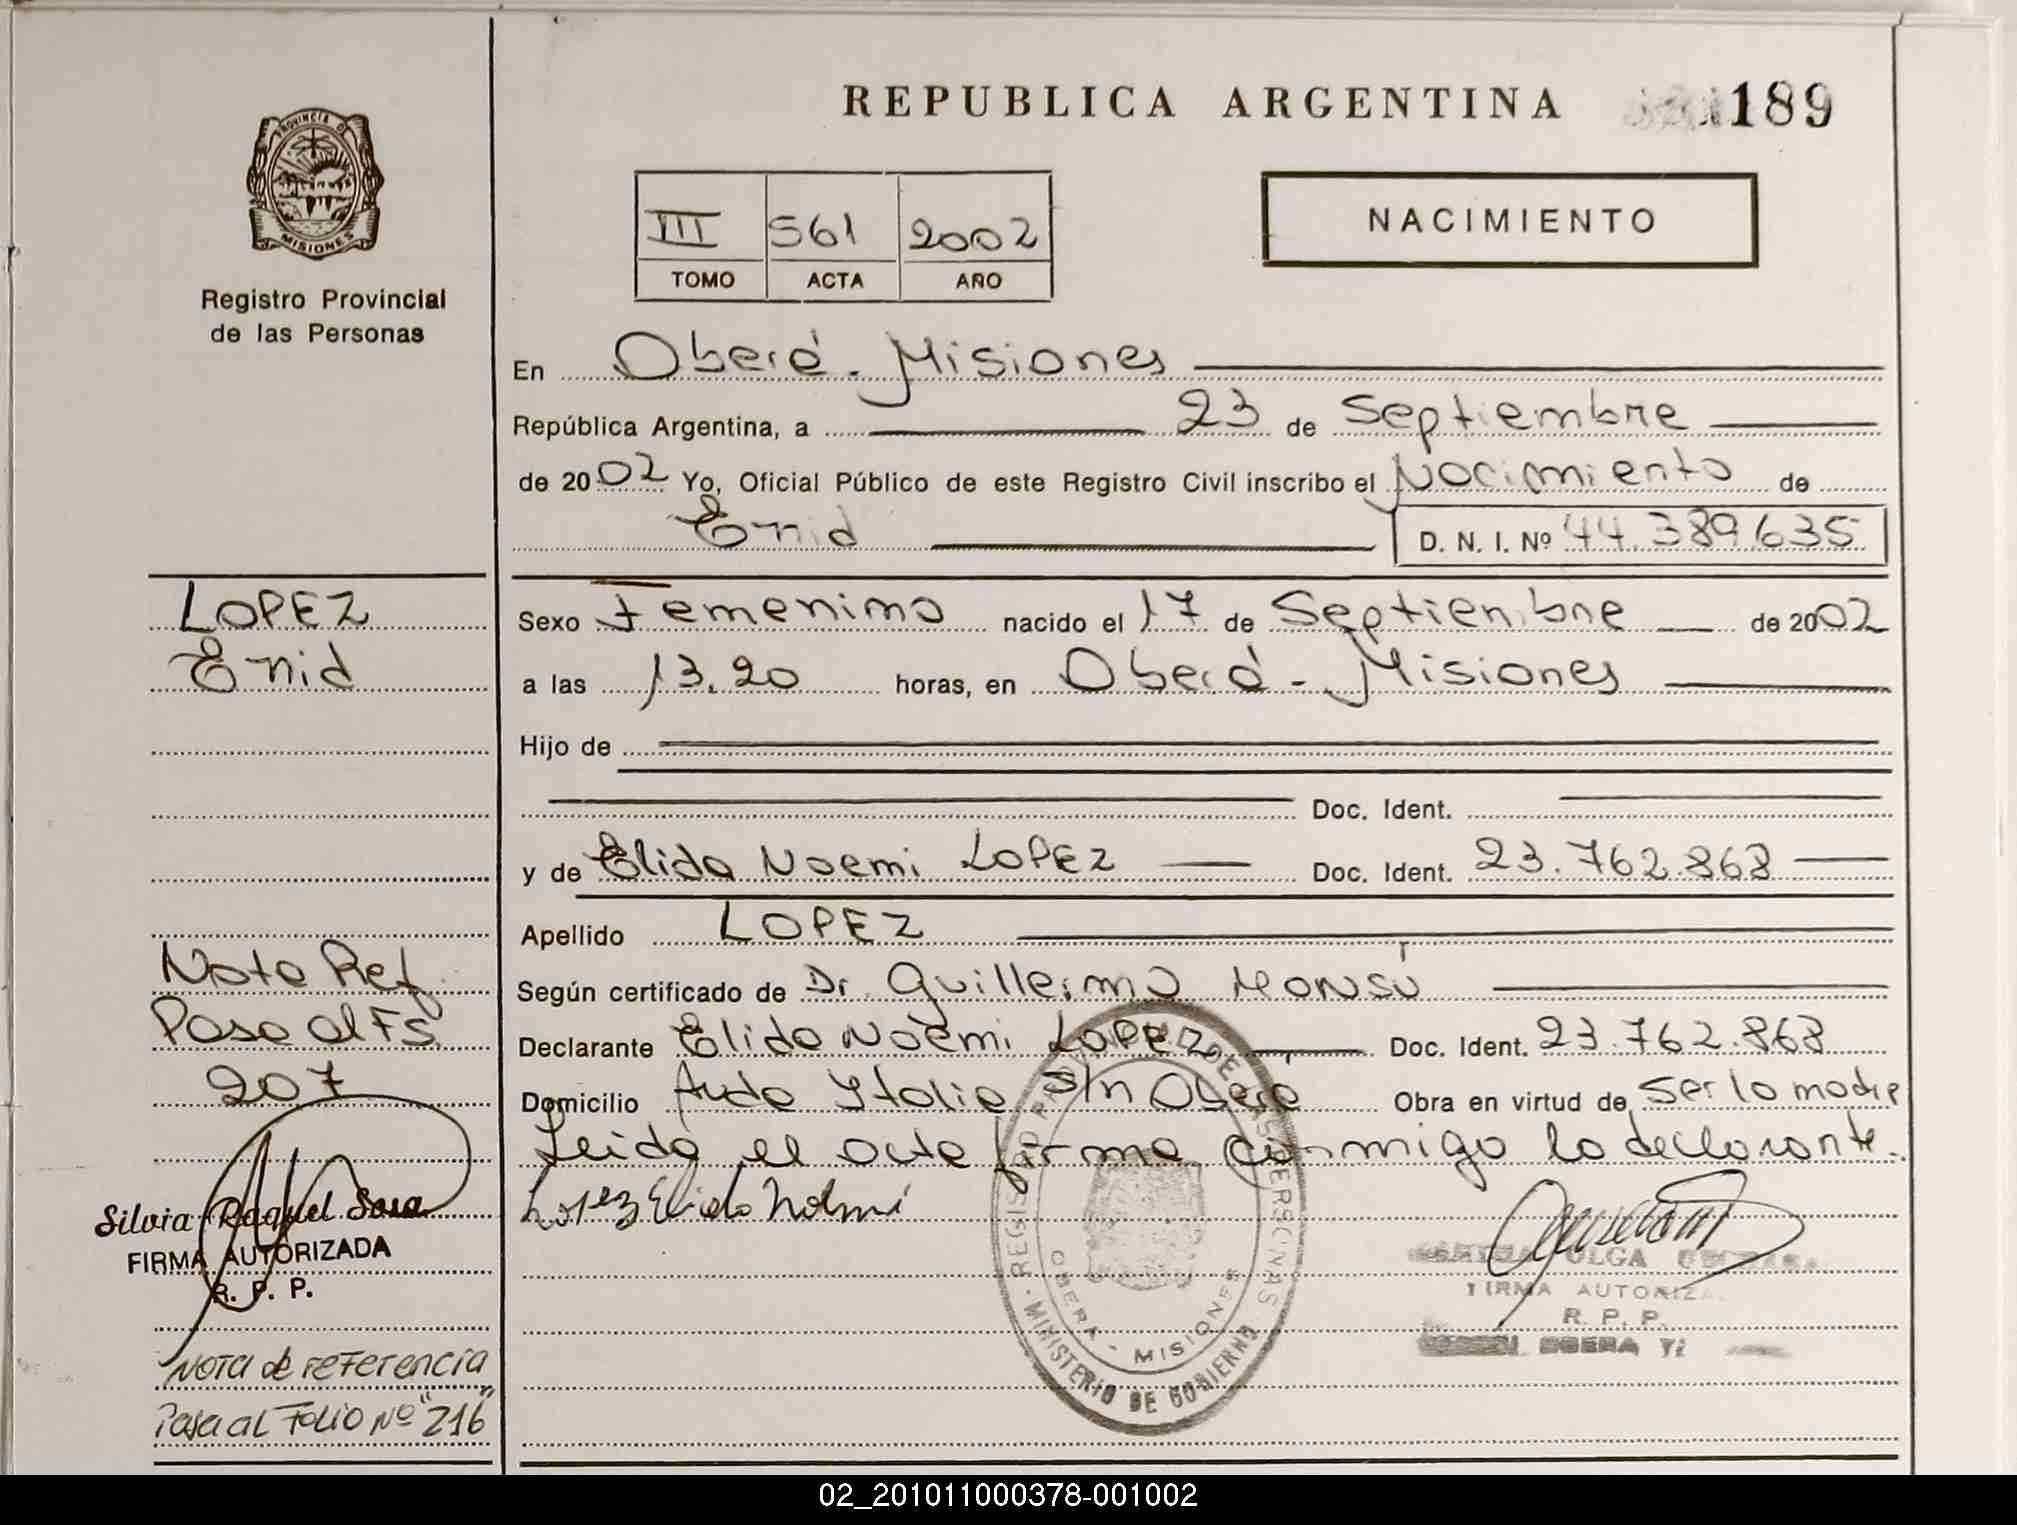 REPUBLICA ARGENTINA 189
PROVINCIA DE
MISIONES
Registro Provincial
de las Personas
III 561 2002
TOMO ACTA AÑO
NACIMIENTO
En Oberá - Misiones
República Argentina, a 23 de Septiembre
de 2002 Yo, Oficial Público de este Registro Civil inscribo el Nacimiento de
Enid D. N. I. Nº 44.389.635
LOPEZ
Enid
Sexo Femenino nacido el 17 de Septiembre de 2002
a las 13.20 horas, en Oberá - Misiones
Hijo de
Doc. Ident.
y de Elida Noemi LOPEZ Doc. Ident. 23.762.868
Apellido LOPEZ
Según certificado de Dr. Guillermo Monsú
Declarante Elida Noemi LOPEZ Doc. Ident. 23.762.868
Domicilio Avda Italia S/n Oberá Obra en virtud de ser la madre
Leida el acta firma conmigo la declarante.
Lopez Elida Noemi
Nota Ref.
Pasa al Fs.
207
Silvia Raquel Sosa
FIRMA AUTORIZADA
R. P. P.
Nota de referencia
Pasa al Folio Nº "216"
REGISTRO PROVINCIAL DE LAS PERSONAS
OBERA - MISIONES
MINISTERIO DE GOBIERNO
OLGA
FIRMA AUTORIZA
R. P. P.
OBERA
02_201011000378-001002